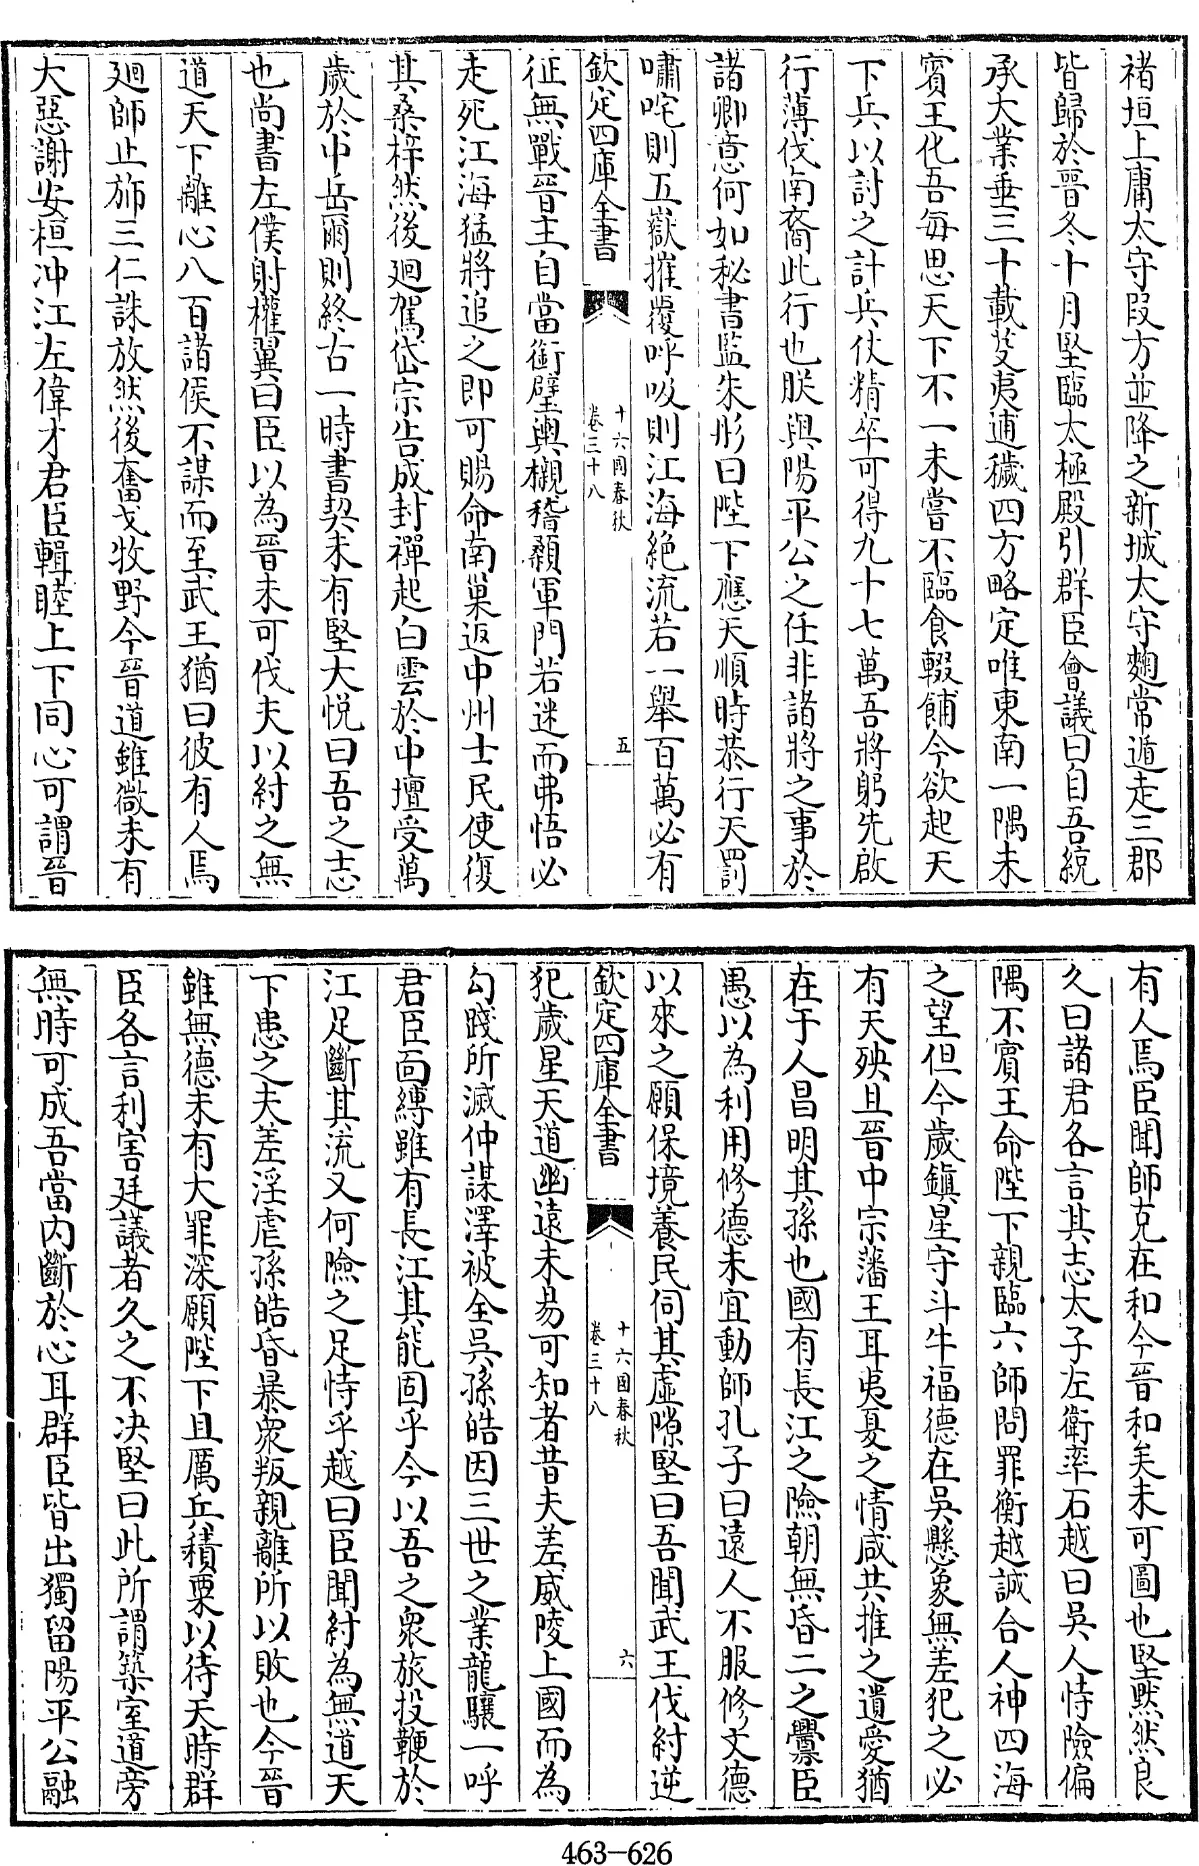 褚垣上庸太守段方並降之新城太守麴常遁走三郡
皆歸於晉冬十月堅臨太極殿引群臣會議曰自吾統
承大業垂三十載芟夷逋穢四方略定唯東南一隅未
賓王化吾每思天下不一未嘗不臨食輟餔今欲起天
下兵以討之計兵仗精卒可得九十七萬吾將躬先啟
行薄伐南裔此行也朕與陽平公之任非諸將之事於
諸卿意何如秘書監朱肜曰陛下應天順時恭行天罰
嘯咤則五嶽摧覆呼吸則江海絶流若一舉百萬必有
欽定四庫全書
十六國春秋
卷三十八
五
征無戰晉主自當銜璧輿櫬稽顙軍門若迷而弗悟必
走死江海猛將追之即可賜命南巢返中州士民使復
其桑梓然後廻駕岱宗告成封禪起白雲於中壇受萬
歲於中岳爾則終古一時書契未有堅大悦曰吾之志
也尚書左僕射權翼曰臣以為晉未可伐夫以紂之無
道天下離心八百諸侯不謀而至武王猶曰彼有人焉
廻師止斾三仁誅放然後奮戈牧野今晉道雖微未有
大惡謝安桓冲江左偉才君臣輯睦上下同心可謂晉
有人焉臣聞師克在和今晉和矣未可圖也堅黙然良
久曰諸君各言其志太子左衛率石越曰吳人恃險偏
隅不賓王命陛下親臨六師問罪衡越誠合人神四海
之望但今歲鎮星守斗牛福德在吳懸象無差犯之必
有天殃且晉中宗藩王耳夷夏之情咸共推之遺愛猶
在于人昌明其孫也國有長江之險朝無昏二之釁臣
愚以為利用修德未宜動師孔子曰遠人不服修文德
以來之願保境養民伺其虛隙堅曰吾聞武王伐紂逆
欽定四庫全書
十六國春秋
卷三十八
六
犯歲星天道幽遠未易可知者昔夫差威陵上國而為
勾踐所滅仲謀澤被全吳孫皓因三世之業龍驤一呼
君臣面縛雖有長江其能固乎今以吾之衆旅投鞭於
江足斷其流又何險之足恃乎越曰臣聞紂為無道天
下患之夫差淫虐孫皓昏暴衆叛親離所以敗也今晉
雖無德未有大罪深願陛下且厲兵積粟以待天時群
臣各言利害廷議者久之不决堅曰此所謂築室道旁
無時可成吾當内斷於心耳群臣皆出獨留陽平公融
463-626